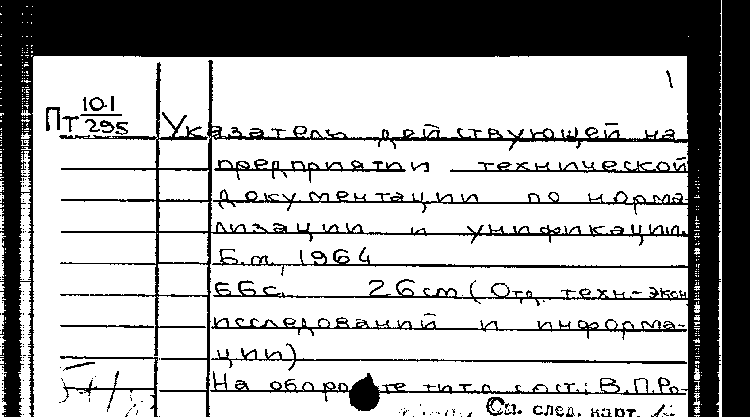 1
Пт 101/295 Указатель действующей на
предприятии технической
документации по норма
лизации и унификации.
Б.м., 1964
66с. 26cm (Отд. техн.-экон
исследований и информа-
ции)
На обороте тит.л. сост.: В.П.Ро-
См. след. карт.